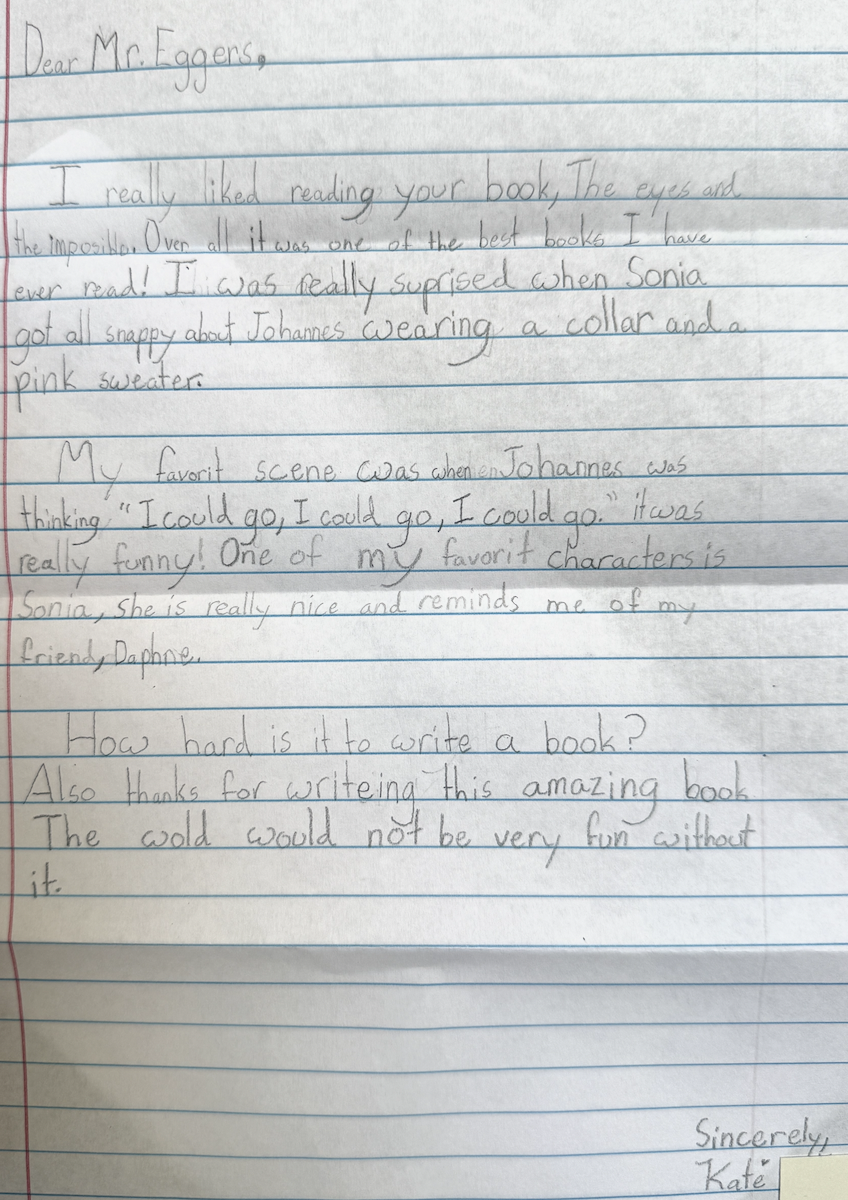 Dear Mr. Eggers,
I really liked reading your book, The eyes and
the imposillo. Over all it was one of the best books I have
ever read! I was really suprised when Sonia
got all snappy about Johannes wearing a collar and a
pink sweater.
My favorit scene was when Johannes was
thinking "I could go, I could go, I could go." it was
really funny! One of my favorit characters is
Sonia, she is really nice and reminds me of my
friend, Daphne.
How hard is it to write a book?
Also thanks for writeing this amazing book
The wold would not be very fun without
it.
Sincerely,
Kate